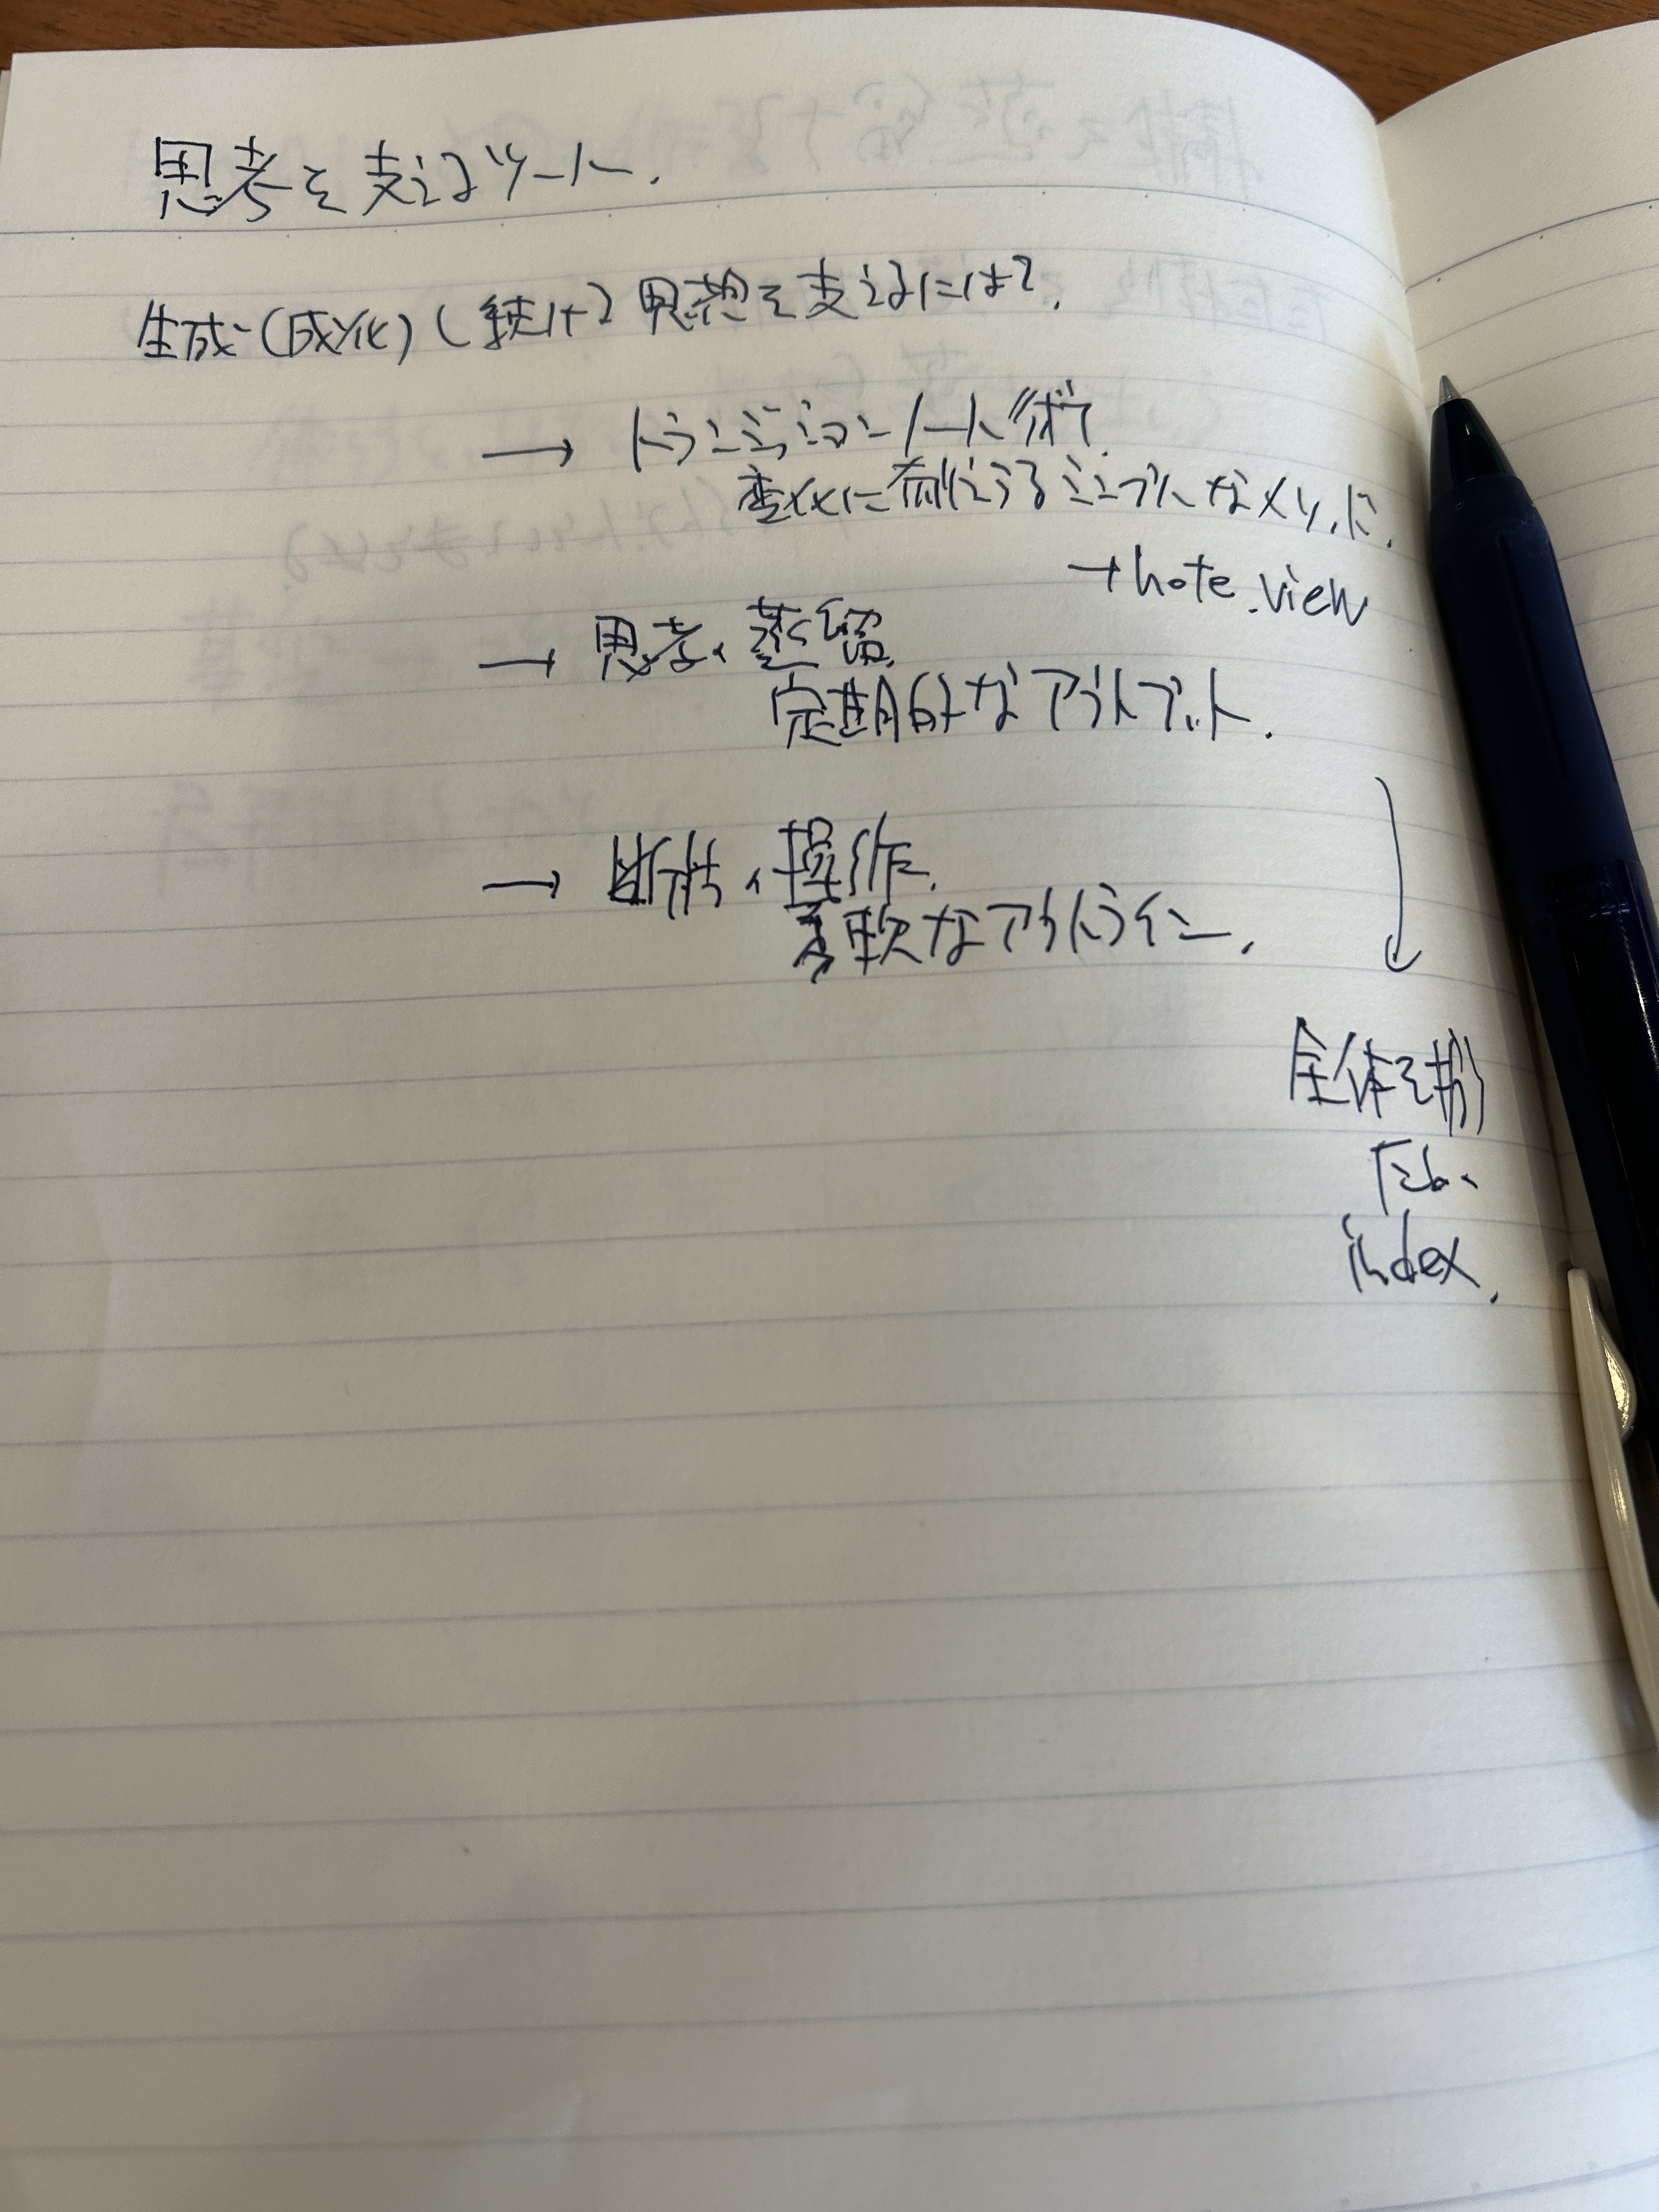 思考を支えるノート.
生成・(成火化)し続ける思想を支えるには?.
→ トランジションノート術.
変化に耐えうるシンプルなメソッド.
→ note.view
→ 思考の蒸留.
定期的なアウトプット.
→ 断片の操作.
柔軟なアウトライン.
↓
全体を掴む
ための
index.